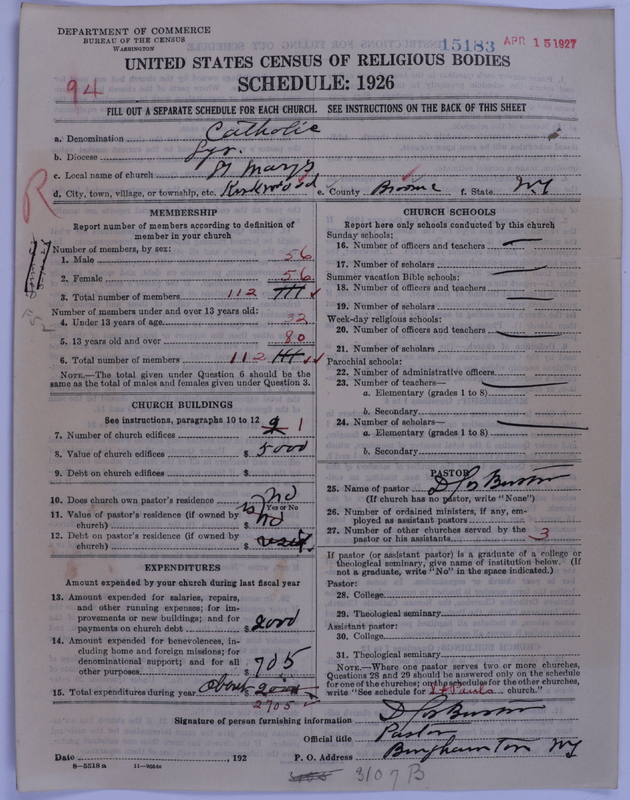 DEPARTMENT OF COMMERCE
BUREAU OF THE CENSUS
WASHINGTON
15183 APR 15 1927
UNITED STATES CENSUS OF RELIGIOUS BODIES
SCHEDULE: 1926
94
FILL OUT A SEPARATE SCHEDULE FOR EACH CHURCH. SEE INSTRUCTIONS ON THE BACK OF THIS SHEET
a. Denomination Catholic
b. Diocese Syr.
c. Local name of church St Marys
d. City, town, village, or township, etc. Kirkwood e. County Broome f. State NY
R
MEMBERSHIP
Report number of members according to definition of
member in your church
Number of members, by sex:
1. Male 56
2. Female 56
3. Total number of members 112
Number of members under and over 13 years old:
4. Under 13 years of age 32
5. 13 years old and over 80
6. Total number of members 112
NOTE.—The total given under Question 6 should be
same as the total of males and females given under Question 3.
CHURCH BUILDINGS
See instructions, paragraphs 10 to 12
7. Number of church edifices 1
8. Value of church edifices $ 5000
9. Debt on church edifices $
10. Does church own pastor's residence No
Yes or No
11. Value of pastor's residence (if owned by
church) $ No
12. Debt on pastor's residence (if owned by
church) $
EXPENDITURES
Amount expended by your church during last fiscal year
13. Amount expended for salaries, repairs,
and other running expenses; for im-
provements or new buildings; and for
payments on church debt $ 2000
14. Amount expended for benevolences, in-
cluding home and foreign missions; for
denominational support; and for all
other purposes $ 705
15. Total expenditures during year About $
2705
CHURCH SCHOOLS
Report here only schools conducted by this church
Sunday schools:
16. Number of officers and teachers
17. Number of scholars
Summer vacation Bible schools:
18. Number of officers and teachers
19. Number of scholars
Week-day religious schools:
20. Number of officers and teachers
21. Number of scholars
Parochial schools:
22. Number of administrative officers
23. Number of teachers—
a. Elementary (grades 1 to 8)
b. Secondary
24. Number of scholars—
a. Elementary (grades 1 to 8)
b. Secondary
PASTOR
25. Name of pastor
(If church has no pastor, write "None")
26. Number of ordained ministers, if any, em-
ployed as assistant pastors
27. Number of other churches served by the
pastor or his assistants 3
If pastor (or assistant pastor) is a graduate of a college or
theological seminary, give name of institution below. (If
not a graduate, write "No" in the space indicated.)
Pastor:
28. College
29. Theological seminary
Assistant pastor:
30. College
31. Theological seminary
NOTE.—Where one pastor serves two or more churches,
Questions 28 and 29 should be answered only on the schedule
for one of the churches; on the schedules for the other churches,
write "See schedule for St Pauls church."
Signature of person furnishing information
Official title Pastor
Date , 192 P. O. Address Binghamton NY
8—5518a 11—9054a
3107 B